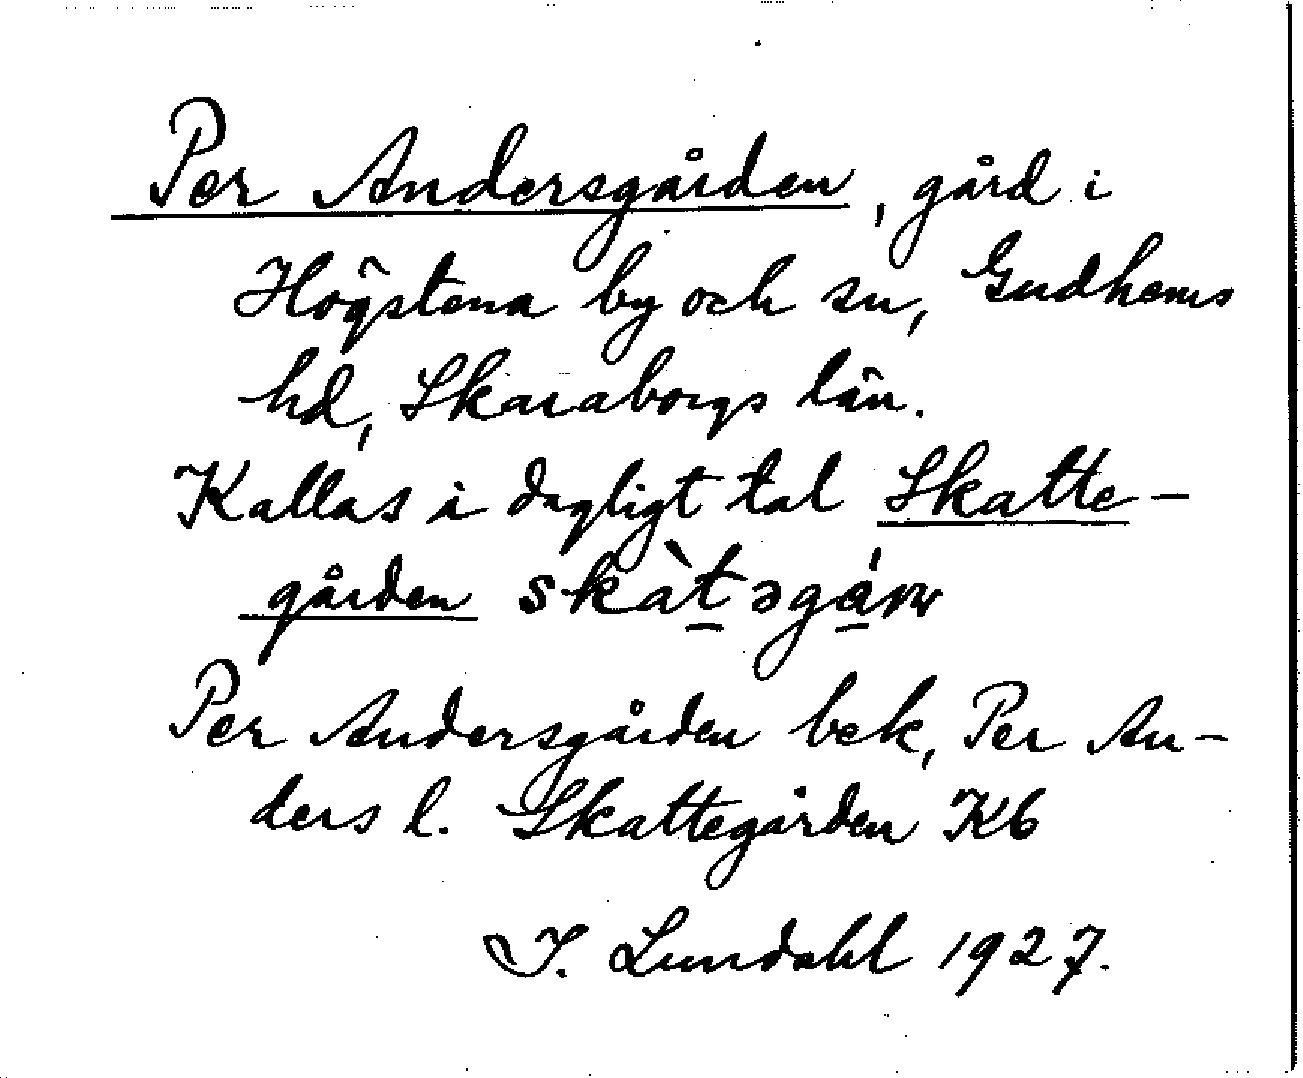 Per Andersgården, gård i
Högstena by och sn, Gudhems
hd, Skaraborgs län.
Kallas i dagligt tal Skatte-
gården skàt̲əgá̲ṛn
Per Andersgården bek, Per An-
ders l. Skattegården Kb
I. Lundahl 1927.